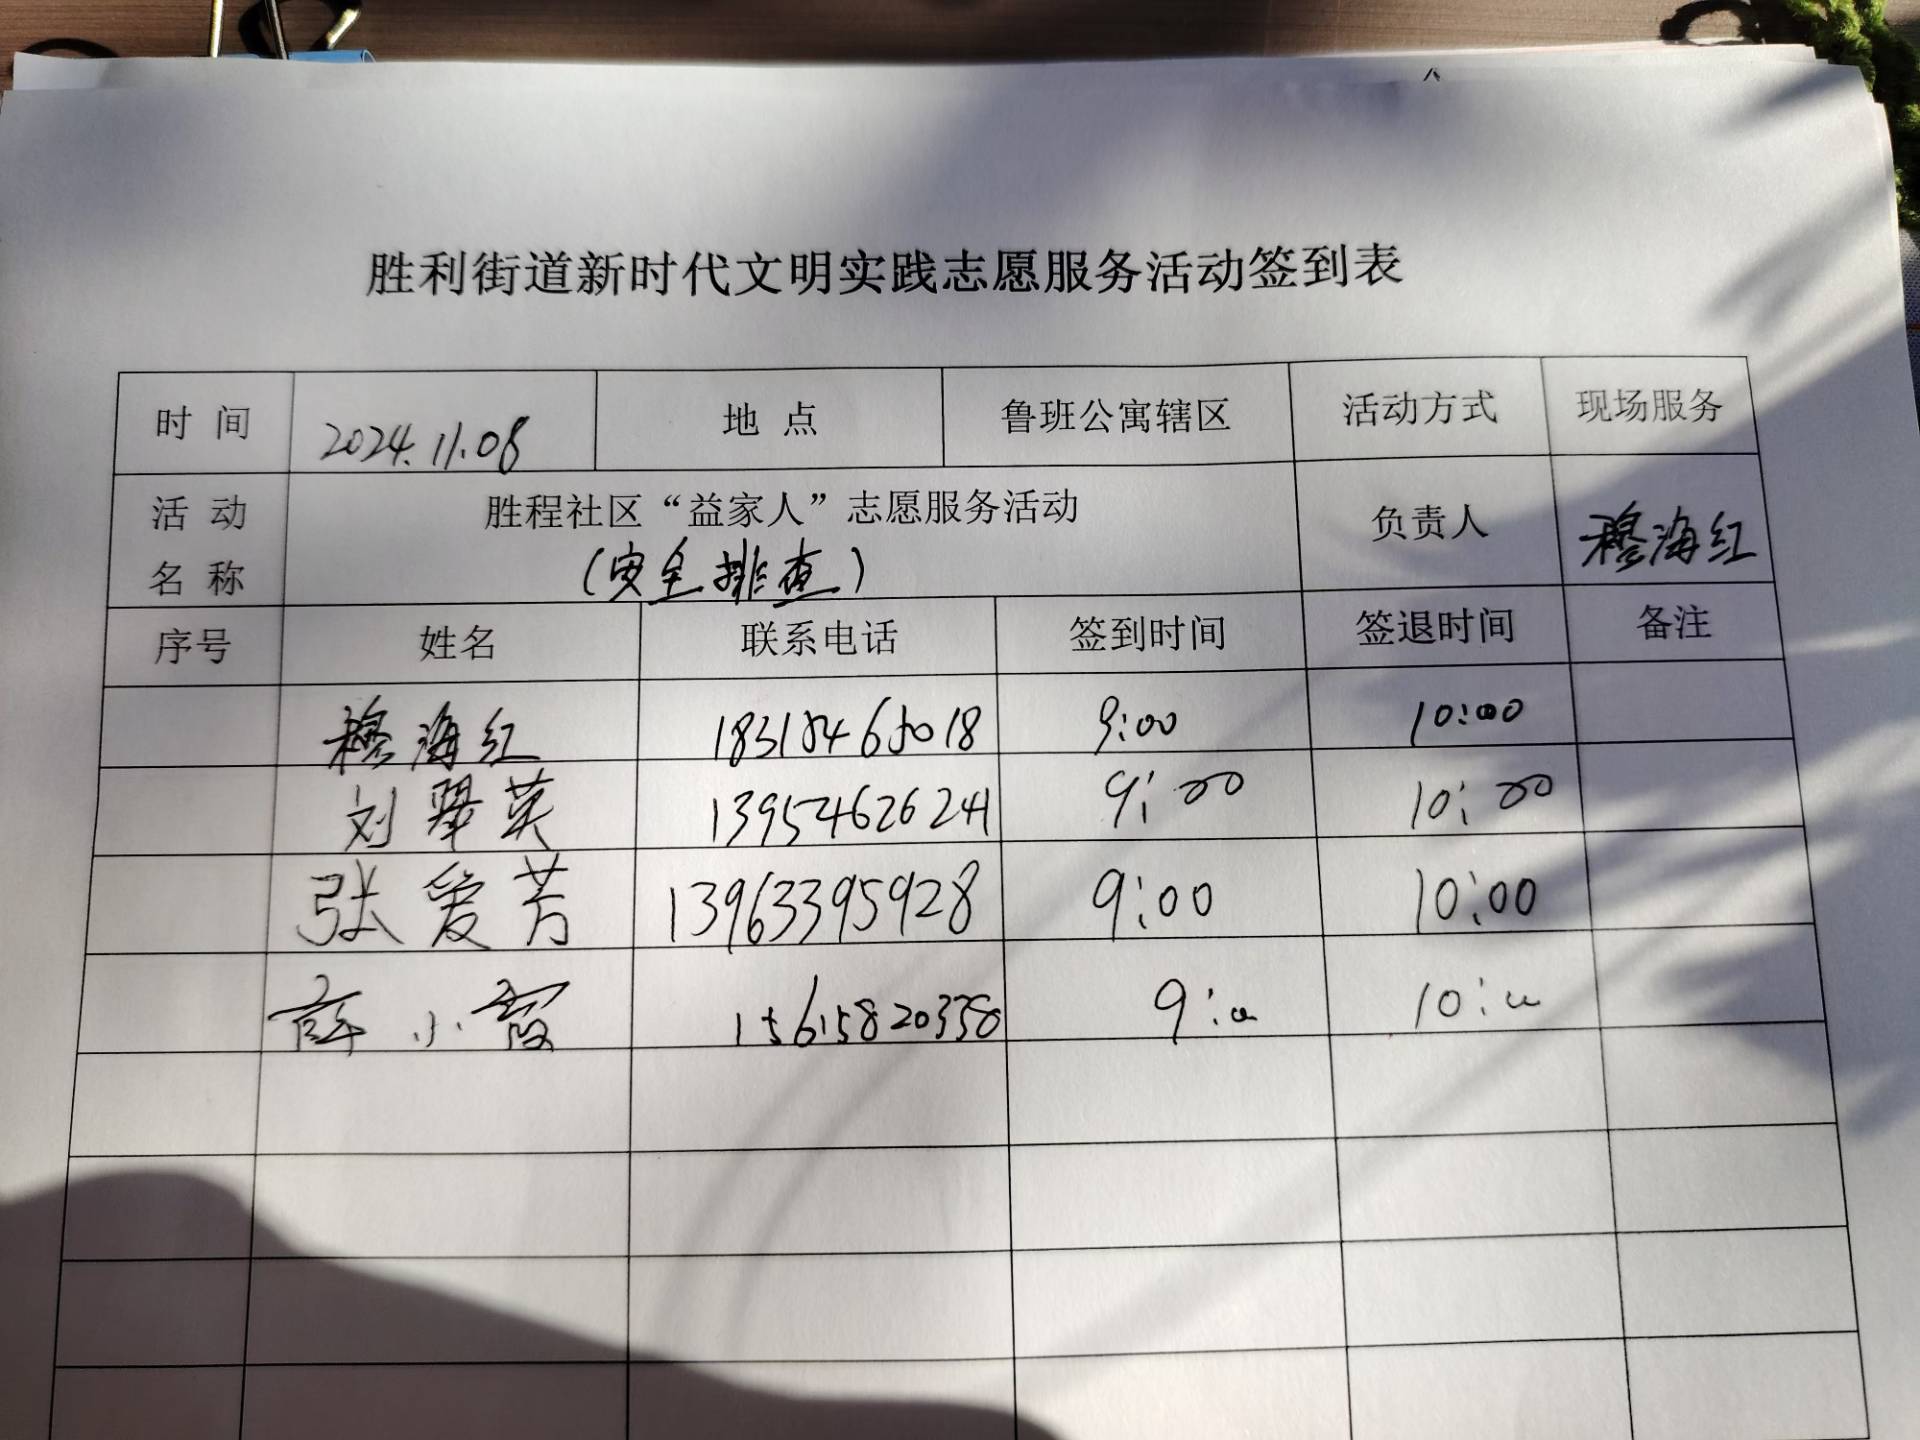 胜利街道新时代文明实践志愿服务活动签到表
时 间 2024.11.08 地 点 鲁班公寓辖区 活动方式 现场服务
活 动 名 称 胜程社区“益家人”志愿服务活动 负责人 穆海红
(安全排查)
序号 姓名 联系电话 签到时间 签退时间 备注
穆海红 18315465018 9:00 10:00
刘翠英 13954626241 9:00 10:00
张爱芳 13963395928 9:00 10:00
薛小霞 15615820338 9:00 10:00